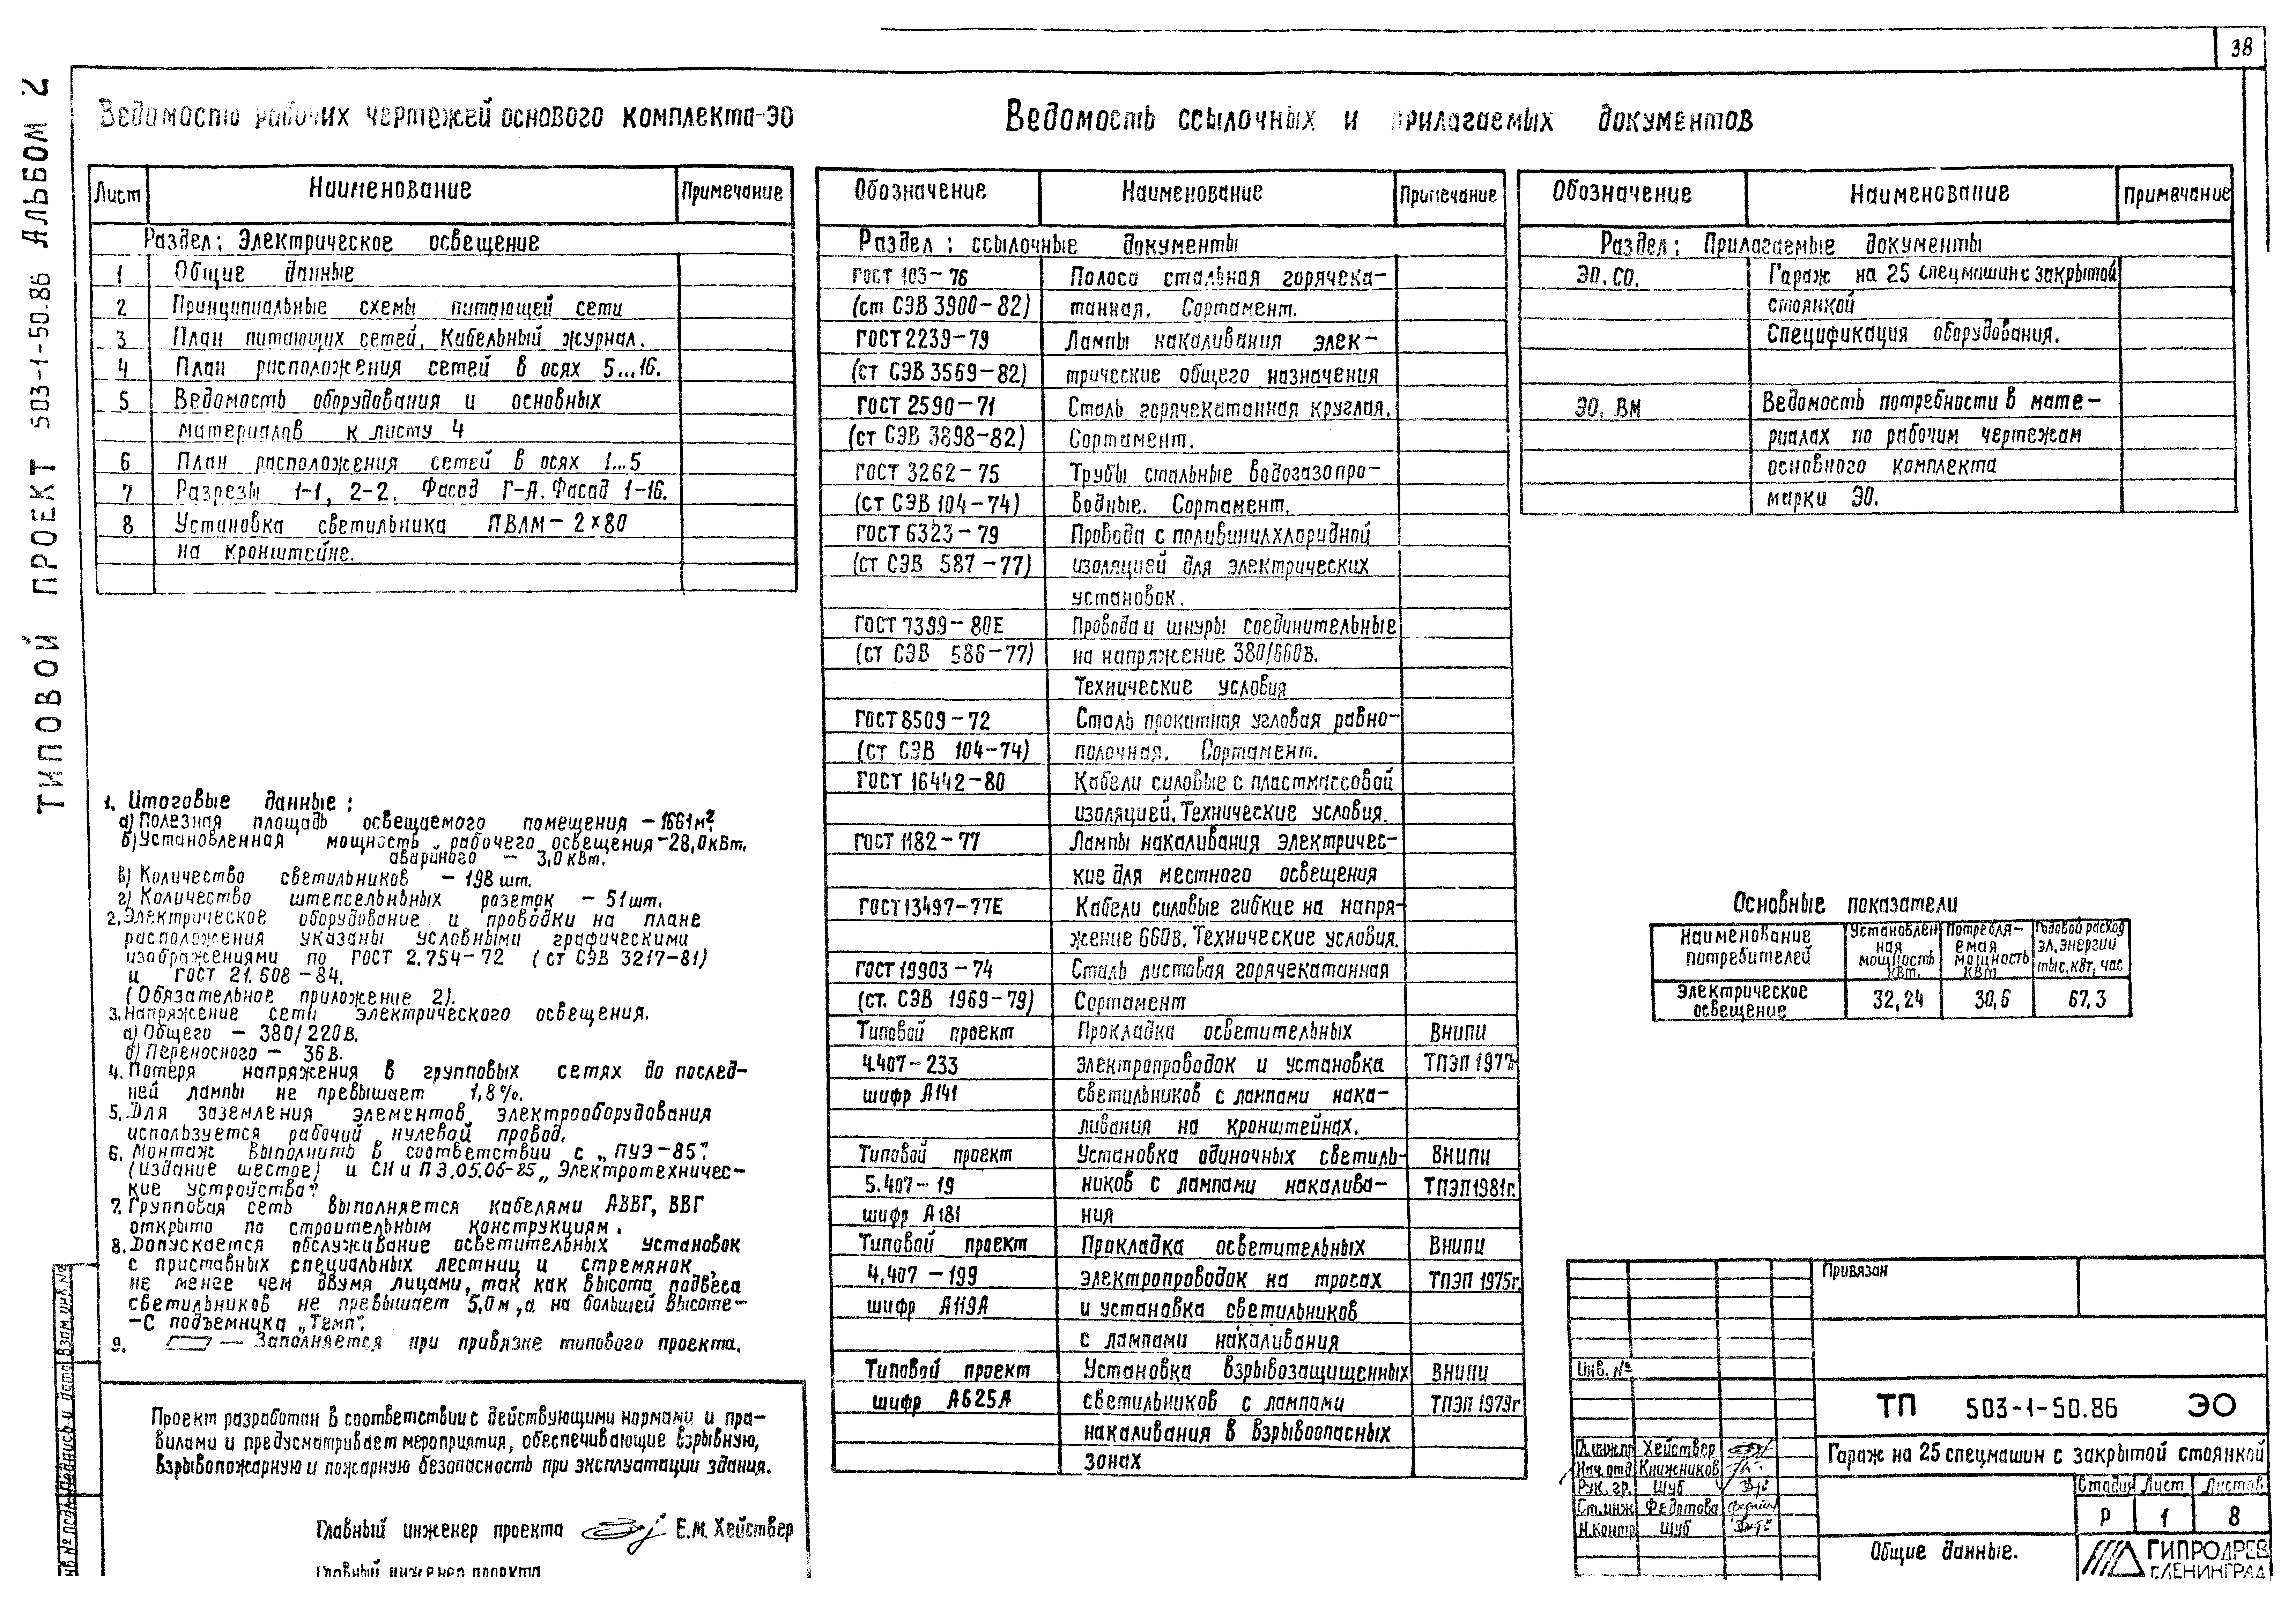 38
ТИПОВОЙ ПРОЕКТ 503-1-50.86 АЛЬБОМ 2
Ведомость рабочих чертежей основого комплекта-ЭО
Лист Наименование Примечание
Раздел: Электрическое освещение
1 Общие данные
2 Принципиальные схемы питающей сети
3 План питающих сетей. Кабельный журнал.
4 План расположения сетей в осях 5...16.
5 Ведомость оборудования и основных
материалов к листу 4
6 План расположения сетей в осях 1...5
7 Разрезы 1-1, 2-2. Фасад Г-А. Фасад 1-16.
8 Установка светильника ПВЛМ-2×80
на кронштейне.
1. Итоговые данные:
а) Полезная площадь освещаемого помещения - 1661м².
б) Установленная мощность рабочего освещения - 28,0кВт.
авариного - 3,0кВт.
в) Количество светильников - 198 шт.
г) Количество штепсельнных розеток - 51шт.
2. Электрическое оборудование и проводки на плане
расположения указаны условными графическими
изображениями по ГОСТ 2.754-72 (ст СЭВ 3217-81)
и ГОСТ 21.608-84.
(Обязательное приложение 2).
3. Напряжение сети электрического освещения.
а) Общего - 380/220В.
б) Переносного - 36В.
4. Потеря напряжения в групповых сетях до послед-
ней лампы не превышает 1,8%.
5. Для заземления элементов электрооборудования
используется рабочий нулевой провод.
6. Монтаж выполнить в соответствии с „ПУЭ-85"
(издание шестое) и СНиП 3.05.06-85 „Электротехничес-
кие устройства"
7. Групповая сеть выполняется кабелями АВВГ, ВВГ
открыто по строительным конструкциям.
8. Допускается обслуживание осветительных установок
с приставных специальных лестниц и стремянок
не менее чем двумя лицами, так как высота подвеса
светильников не превышает 5,0м, а на большей высоте-
-с подъемника „Темп".
9. — Заполняется при привязке типового проекта.
Проект разработан в соответствии с действующими нормами и пра-
вилами и предусматривает мероприятия, обеспечивающие взрывную,
взрывопожарную и пожарную безопасность при эксплуатации здания.
Главный инженер проекта Е.М. Хействер
Главный инженер проекта
Взам. инв. №
Подпись и дата
Инв № подл.
Ведомость ссылочных и прилагаемых документов
Обозначение Наименование Примечание
Раздел: ссылочные документы
ГОСТ 103-76 Полоса стальная горячека-
(ст СЭВ 3900-82) танная. Сортамент.
ГОСТ 2239-79 Лампы накаливания элек-
(ст СЭВ 3569-82) трические общего назначения
ГОСТ 2590-71 Сталь горячекатанная круглая.
(ст СЭВ 3898-82) Сортамент.
ГОСТ 3262-75 Трубы стальные водогазопро-
(ст СЭВ 104-74) водные. Сортамент.
ГОСТ 6323-79 Провода с поливинилхлоридной
(ст СЭВ 587-77) изоляцией для электрических
установок.
ГОСТ 7399-80Е Провода и шнуры соединительные
(ст СЭВ 586-77) на напряжение 380/660в.
Технические условия
ГОСТ 8509-72 Сталь прокатная угловая равно-
(ст СЭВ 104-74) полочная. Сортамент.
ГОСТ 16442-80 Кабели силовые с пластмассовой
изоляцией. Технические условия.
ГОСТ 1182-77 Лампы накаливания электричес-
кие для местного освещения
ГОСТ 13497-77Е Кабели силовые гибкие на напря-
жение 660в. Технические условия.
ГОСТ 19903-74 Сталь листовая горячекатанная
(ст. СЭВ 1969-79) Сортамент
Типовой проект Прокладка осветительных Внипи
4.407-233 электропроводок и установка ТПЭП 1977г
шифр А141 светильников с лампами нака-
ливания на кронштейнах.
Типовой проект Установка одиночных светиль- Внипи
5.407-19 ников с лампами накалива- ТПЭП1981г.
шифр А181 ния
Типовой проект Прокладка осветительных Внипи
4.407-199 электропроводок на тросах ТПЭП 1975г.
шифр А119А и установка светильников
с лампами накаливания
Типовой проект Установка взрывозащищенных Внипи
шифр А625А светильников с лампами ТПЭП 1979г
накаливания в взрывоопасных
зонах
Обозначение Наименование Примечание
Раздел: Прилагаемые документы
ЭО.СО. Гараж на 25 спецмашин с закрытой
стоянкой
Спецификация оборудования.
ЭО. ВМ Ведомость потребности в мате-
риалах по рабочим чертежам
основного комплекта
марки ЭО.
Основные показатели
Наименование потребителей Установленная мощность кВт. Потребляемая мощность кВт Годовой расход эл.энергии тыс.квт.час
Электрическое освещение 32,24 30,6 67,3
Привязан
Инв. №
ТП 503-1-50.86 ЭО
Гл.инж.пр Хействер
Нач.отд Книжников
Рук.гр. Шуб
Ст.инж Федотова
Н.контр Шуб
Гараж на 25 спецмашин с закрытой стоянкой
Стадия Лист Листов
Р 1 8
Общие данные.
ГИПРОДРЕВ
г.ЛЕНИНГРАД